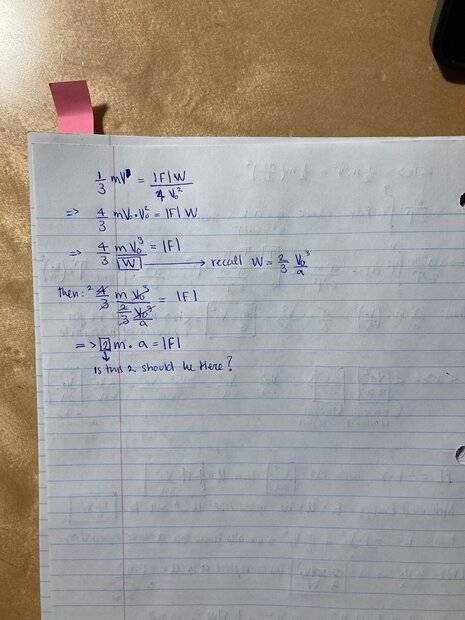 1/3 mV = |F| W / 4 V₀²
=> 4/3 mV₀·V₀² = |F| W
=> 4/3 m V₀³ / W = |F| → recall W = 2/3 V₀³/a
then: ² 4/3 m V₀³ / 2/3 V₀³/a = |F|
=> 2 m · a = |F|
Is this 2 should be Here?